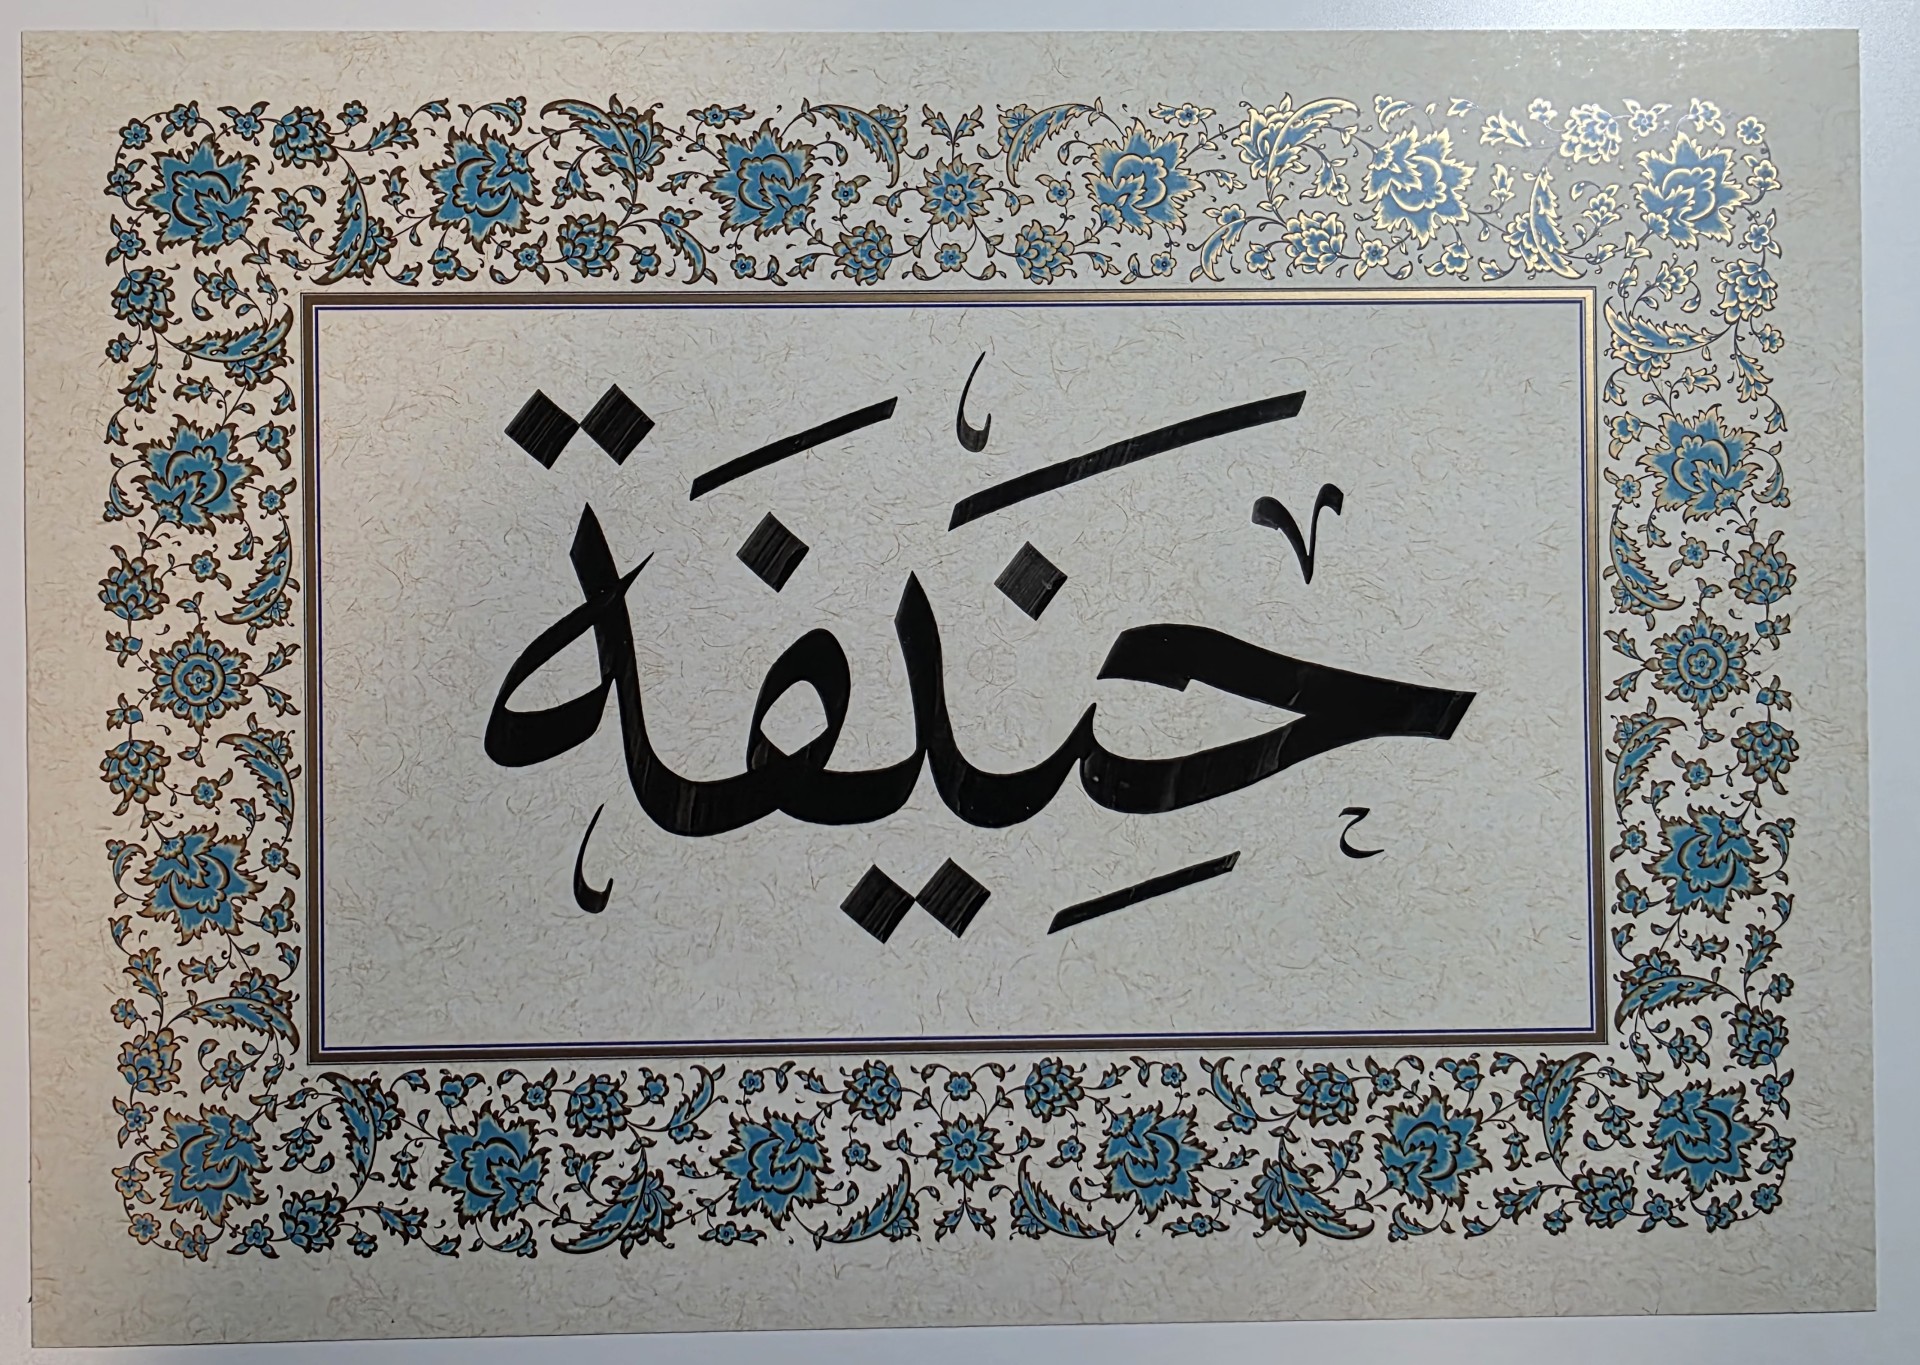 حَنِيفَة